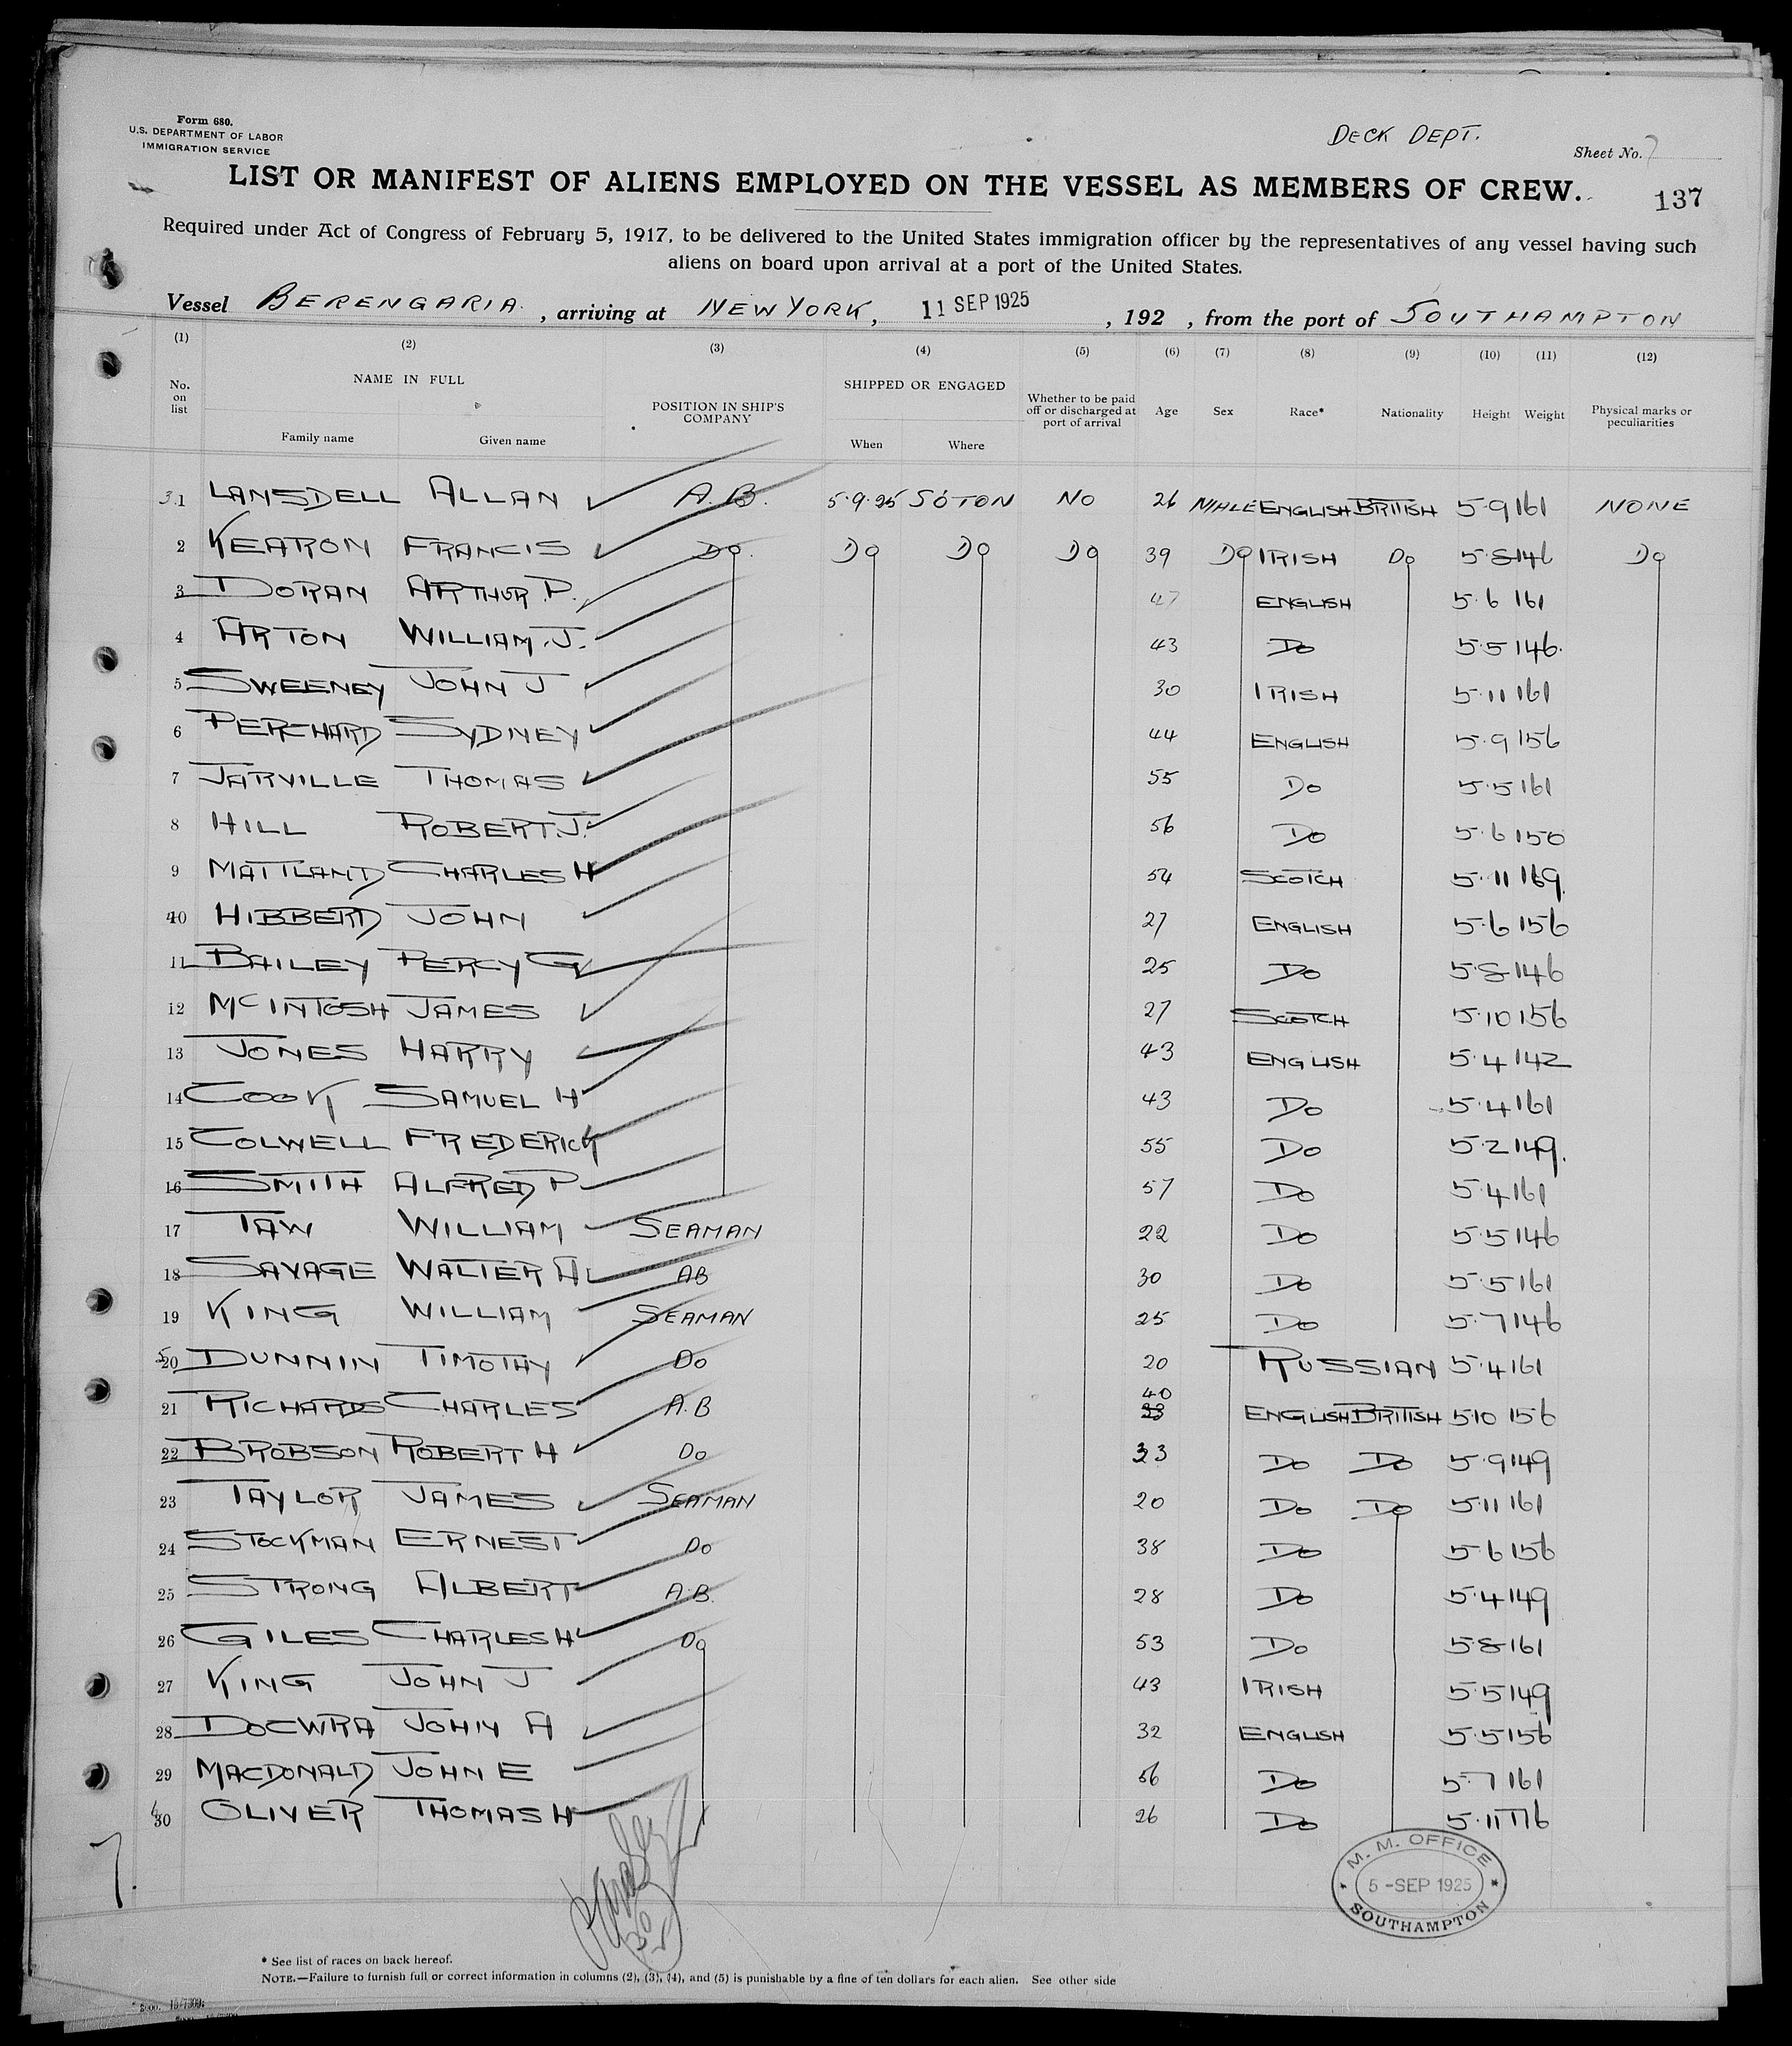 Form 680.
U.S. DEPARTMENT OF LABOR
IMMIGRATION SERVICE
DECK DEPT.
Sheet No. 7
LIST OR MANIFEST OF ALIENS EMPLOYED ON THE VESSEL AS MEMBERS OF CREW.
137
Required under Act of Congress of February 5, 1917, to be delivered to the United States immigration officer by the representatives of any vessel having such
aliens on board upon arrival at a port of the United States.
Vessel BERENGARIA, arriving at NEW YORK, 11 SEP 1925, 192 , from the port of SOUTHAMPTON
(1) (2) (3) (4) (5) (6) (7) (8) (9) (10) (11) (12)
No. on list NAME IN FULL Family name Given name POSITION IN SHIP'S COMPANY SHIPPED OR ENGAGED When Where Whether to be paid off or discharged at port of arrival Age Sex Race* Nationality Height Weight Physical marks or peculiarities
31 LANSDELL ALLAN A.B. 5.9.25 SOTON NO 26 MALE ENGLISH BRITISH 5.9 161 NONE
2 KEARON FRANCIS Do. Do Do Do 39 Do IRISH Do 5.8 146 Do
3 DORAN ARTHUR P. 47 ENGLISH 5.6 161
4 ARTON WILLIAM.J. 43 Do 5.5 146.
5 SWEENEY JOHN J 30 IRISH 5.11 161
6 PERCHARD SYDNEY 44 ENGLISH 5.9 156
7 JARVILLE THOMAS 55 Do 5.5 161
8 HILL ROBERT.J. 56 Do 5.6 150
9 MATTLAND CHARLES H 54 SCOTCH 5.11 169.
40 HIBBERD JOHN 27 ENGLISH 5.6 156
11 BAILEY PERCY G 25 Do 5.8 146
12 McINTOSH JAMES 27 SCOTCH 5.10 156
13 JONES HARRY 43 ENGLISH 5.4 142
14 COOK SAMUEL H 43 Do 5.4 161
15 COLWELL FREDERICK 55 Do 5.2 149.
16 SMITH ALFRED P 57 Do 5.4 161
17 TAW WILLIAM SEAMAN 22 Do 5.5 146
18 SAVAGE WALTER A AB 30 Do 5.5 161
19 KING WILLIAM SEAMAN 25 Do 5.7 146
50 DUNNIN TIMOTHY Do 20 RUSSIAN 5.4 161
21 RICHARDS CHARLES A.B 40 ENGLISH BRITISH 5.10 156
22 BROBSON ROBERT H Do 33 Do Do 5.9 149
23 TAYLOR JAMES SEAMAN 20 Do Do 5.11 161
24 STOCKMAN ERNEST Do 38 Do 5.6 156
25 STRONG ALBERT A.B. 28 Do 5.4 149
26 GILES CHARLES H Do 53 Do 5.8 161
27 KING JOHN J 43 IRISH 5.5 149
28 DOCWRA JOHN A 32 ENGLISH 5.5 156
29 MACDONALD JOHN E 56 Do 5.7 161
30 OLIVER THOMAS H 26 Do 5.11 176
7.
M. M. OFFICE
5 - SEP 1925
SOUTHAMPTON
* See list of races on back hereof.
NOTE.—Failure to furnish full or correct information in columns (2), (3), (4), and (5) is punishable by a fine of ten dollars for each alien. See other side